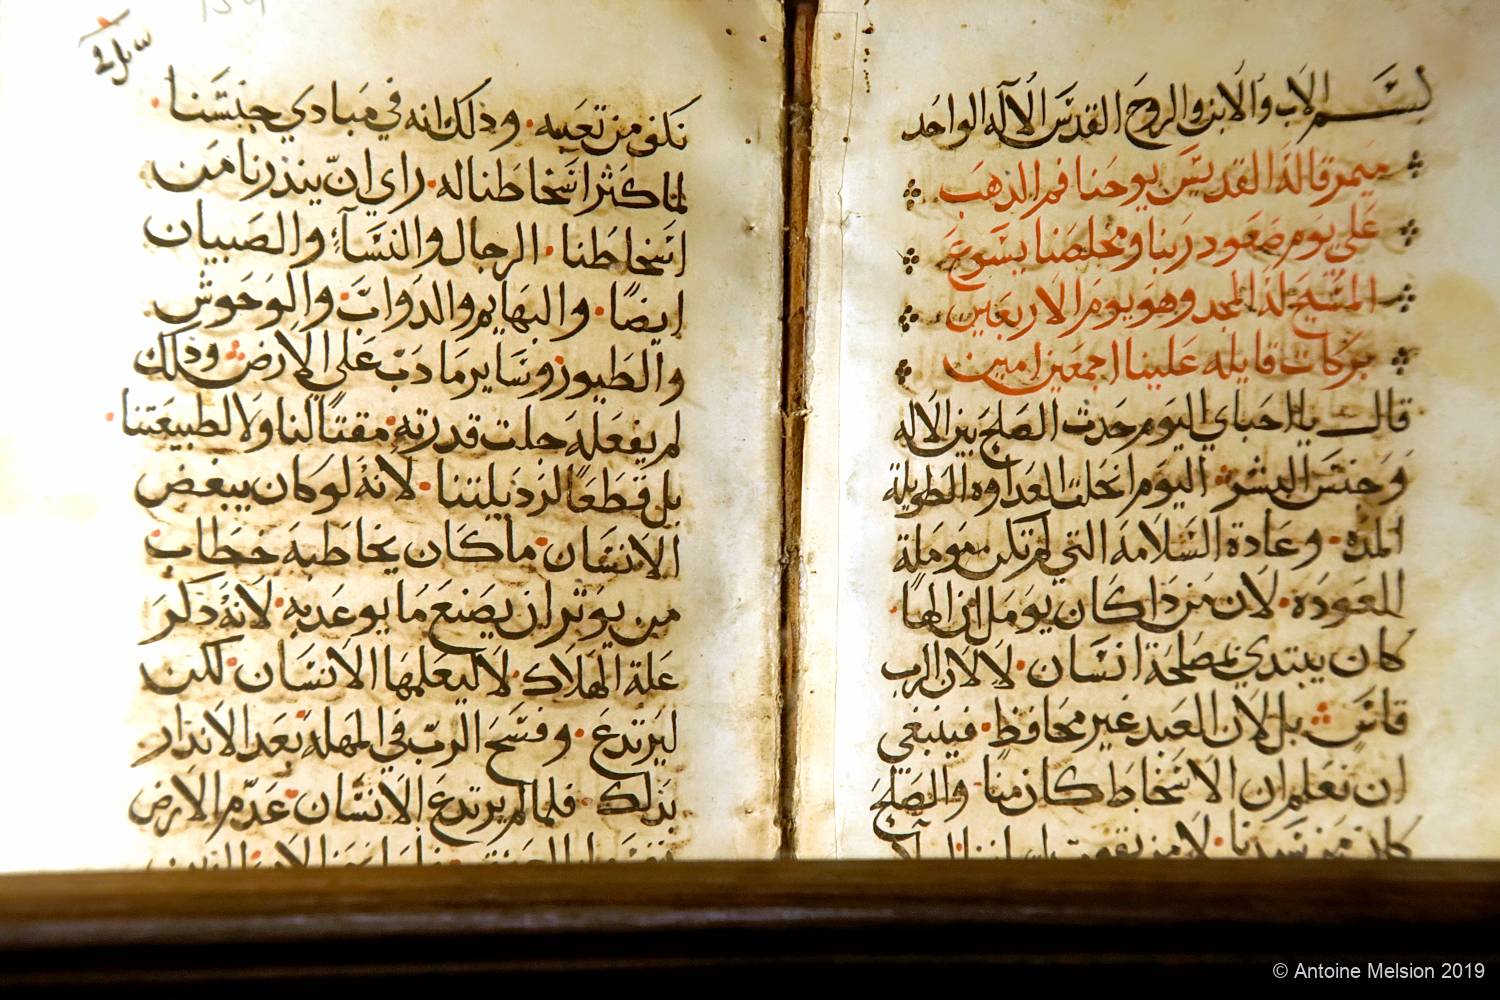 بسم الاب والابن والروح القدس الاله الواحد
ميمر قاله القديس يوحنا فم الذهب
على يوم صعود ربنا ومخلصنا يسوع
المسيح له المجد وهو يوم الاربعين
بركات قايله علينا اجمعين امين
قال يا احباي اليوم حدث الصلح بين الاله
وجنس البشر اليوم انحلت العداوه الطويلة
المده وعادة السلامه التي لم تكن موملة
للعوده لان من ذا كان يومل ان الها
كان يبتدي بمصلحة انسان لا لان الرب
قاس بل لان العبد غير محافظ فينبغي
ان نعلم ان الاسخاط كان منا والصلح
نكف من تعبيه وذلك انه في مبادي جنسنا
لما كثر اسخاطنا له راي ان ينذرنا من
اسخاطنا الرجال والنساء والصبيان
ايضا والبهايم والدواب والوحوش
والطيور وساير ما دب علي الارض وذلك
لم يفعله جلت قدرته مقتا لنا ولا لطبيعتنا
بل قطعا لرذيلتنا لانه لو كان يبغض
الانسان ما كان يخاطبه خطاب
من يوثر ان يصنع ما يوعد به لانه ذكر
علة الهلاك لا ليعلمها الانسان لكن
ليرتدع وفسح الرب في المهله بعد الانذار
بذلك فلما لم يرتدع الانسان عدم الارض
© Antoine Melsion 2019